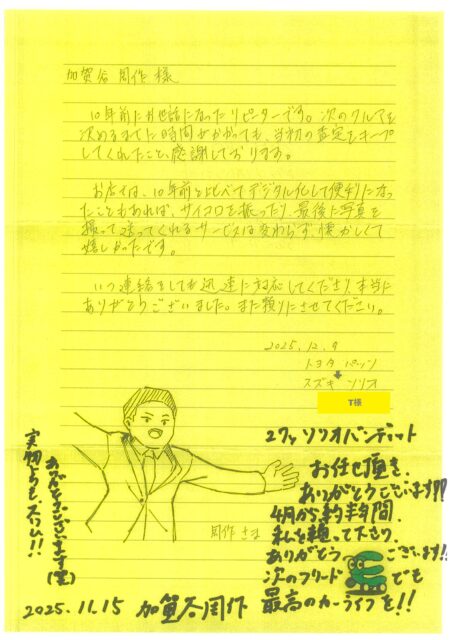 加賀谷 周作 様
10年前にお世話になったリピーターです。次のクルマを
決めるまでに時間がかかっても、当初の査定をキープ
してくれたこと、感謝しております。
お店は、10年前と比べてデジタル化して便利になっ
たこともあれば、サイコロを振ったり、最後に写真を
撮って送ってくれるサービスは変わらず、懐かしくて
嬉しかったです。
いつ連絡をしても迅速に対応してくださり、本当に
ありがとうございました。また頼りにさせてください。
2025.12.9
トヨタ パッソ
スズキ ソリオ
T様
周作さま
ありがとうございます(笑)
実物よりも、スリム!!
27y ソリオバンディット
お任せ頂き、
ありがとうございます!!!
4月から約半年間、
私を頼って下さり、
ありがとうございます!!
次のフリードでも
最高のカーライフを!!
2025.11.15 加賀谷周作